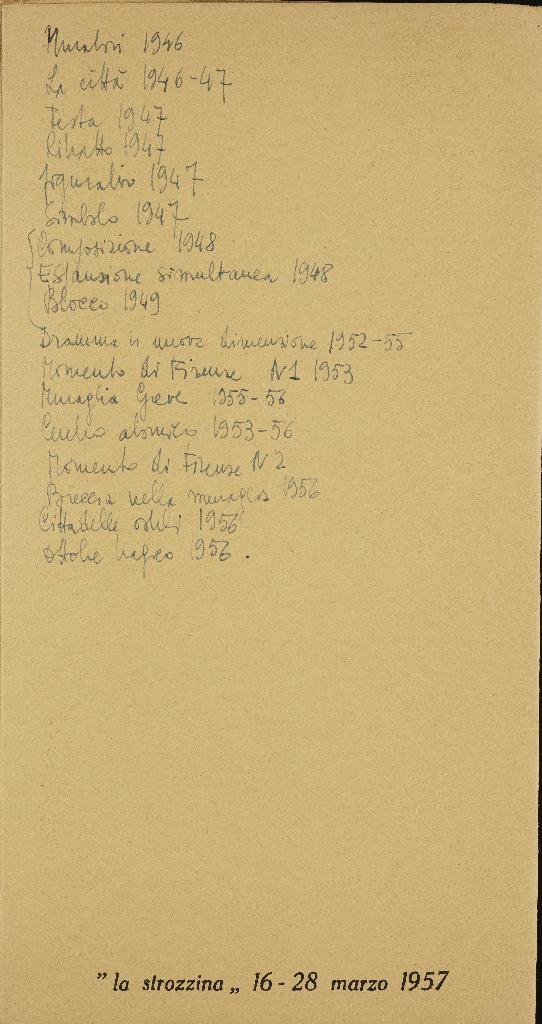 Muratori 1946
La città 1946-47
Testa 1947
Ritratto 1947
Figurativo 1947
Simbolo 1947
Composizione 1948
Espansione simultanea 1948
Blocco 1949
Dramma in nuova dimensione 1952-55
Momento di Firenze N1 1953
Muraglia Greve 1955-56
Centro atomico 1953-56
Momento di Firenze N2
Breccia nella muraglia 1956
Cittadelle ostili 1956
Ottobre tragico 1956.
" la strozzina „ 16 - 28 marzo 1957